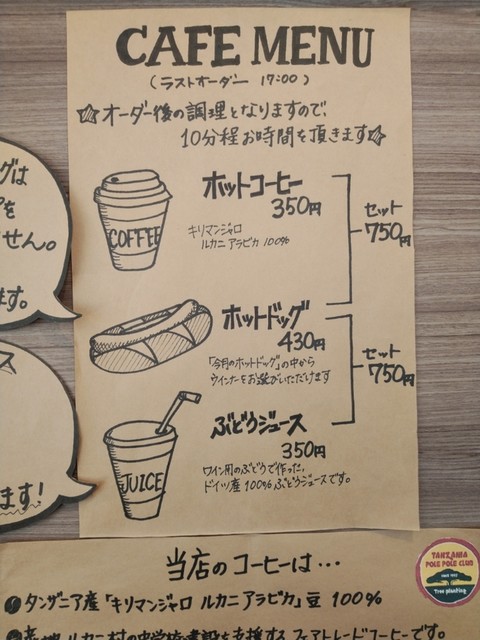 CAFE MENU
(ラストオーダー 17:00)
☆オーダー後の調理となりますので、
10分程お時間を頂きます☆
グは
を
せん。
ます。
COFFEE
ホットコーヒー
350円
キリマンジャロ
ルカニ アラビカ 100%
セット
750円
ホットドッグ
430円
「今月のホットドッグ」の中から
ウインナーをお選びいただけます
セット
750円
ス
ます!
JUICE
ぶどうジュース
350円
ワイン用のぶどうで作った、
ドイツ産100%ぶどうジュースです。
当店のコーヒーは…
タンザニア産「キリマンジャロ ルカニ アラビカ」豆 100%
ルカニ村の中学校建設を支援する フェアトレードコーヒーです。
TANZANIA
POLE POLE CLUB
Tree planting